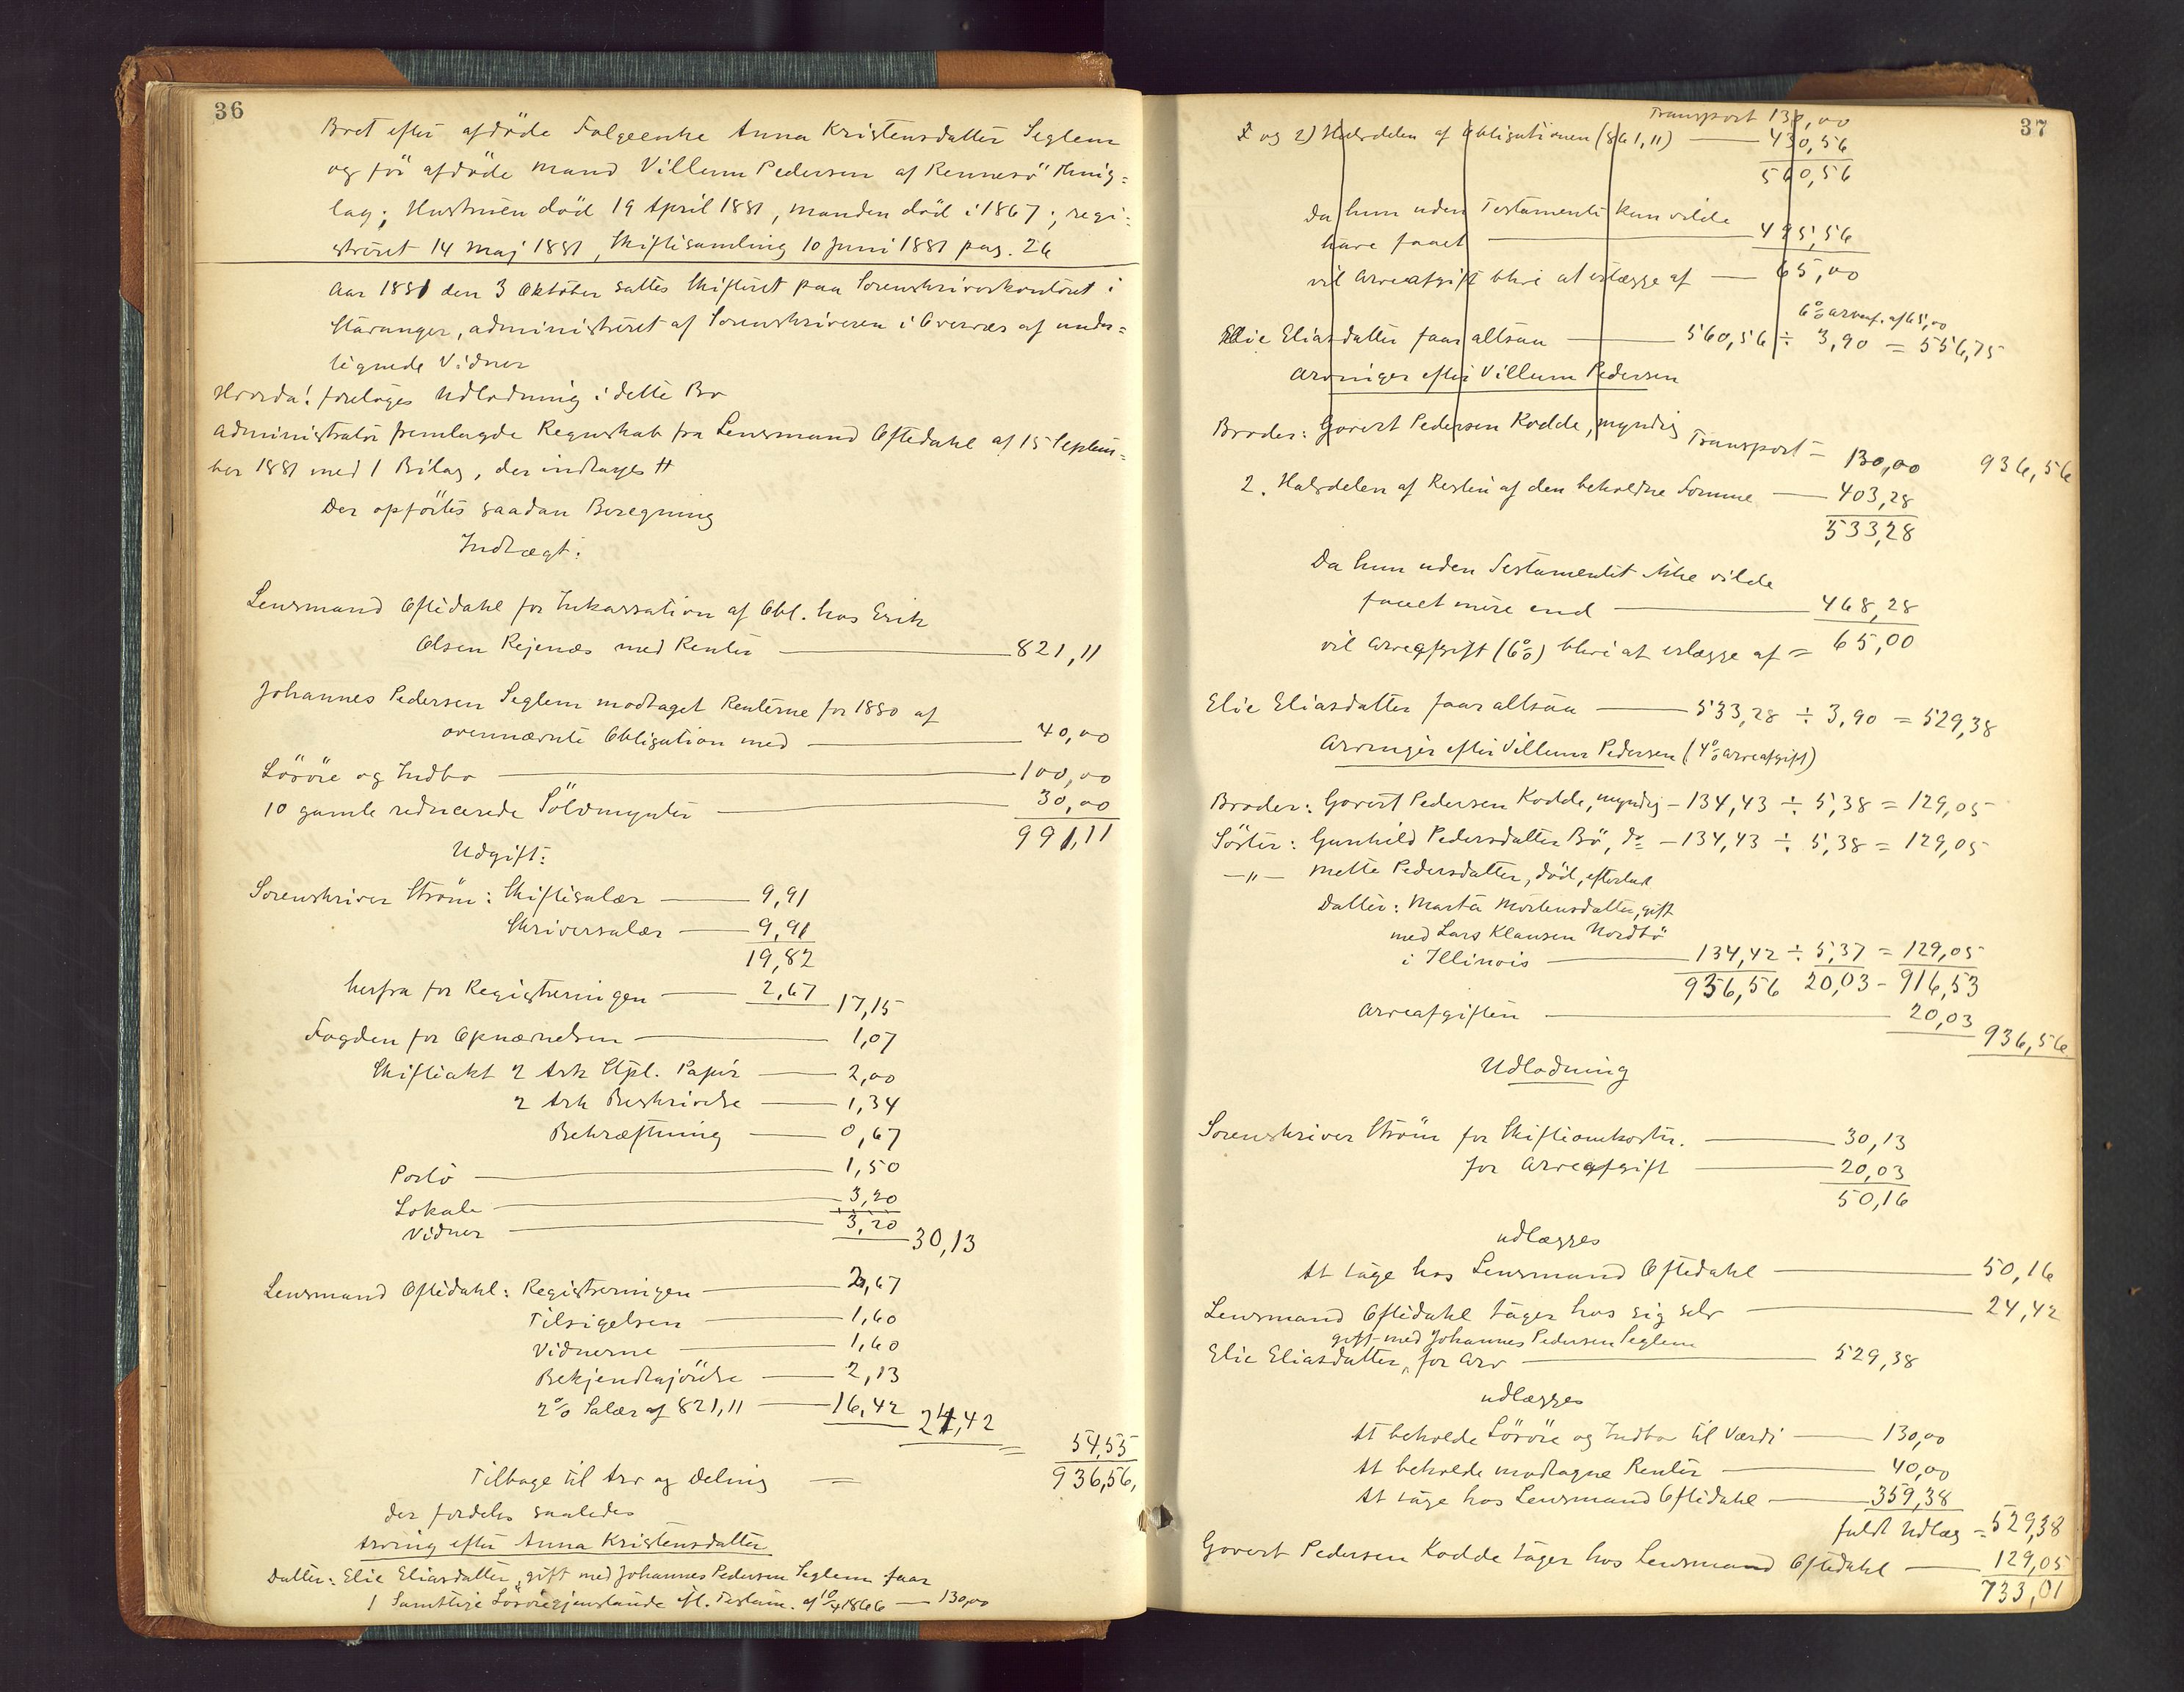 36
Boet efter afdöde Folgeenke Anna Kristensdatter Seglem
og för afdöde Mand Villum Pedersen af Rennesö Thing=
lag; Hustruen död 19 April 1881, Manden död i 1867; regi=
streret 14 Maj 1881, Skiftesamling 10 Juni 1881 pag. 26
Aar 1881 den 3 Oktober sattes Skifteret paa Sorenskriverkontoret i
Stavanger, administreret af Sorenskriveren i Overvær af under=
tegnede Vidner
Hvorda! foretoges Udlodning i dette Bo
Administrator fremlagde Regnskab fra Lensmand Oftedahl af 15 Septem=
ber 1881 med 1 Bilag, der indtages H
Der opförtes saadan Beregning
Indtægt:
Lensmand Oftedahl for Inkassation af Obl. hos Erik
Olsen Rejenæs med Renter — 821,11
Johannes Pedersen Seglem modtaget Renterne for 1880 af
ovennævnte Obligation med — 40,00
Lösöre og Indbo — 100,00
10 gamle reducerede Sölvmynter — 30,00
991,11
Udgift:
Sorenskriver Ström: Skiftesalær — 9,91
Skriversalær — 9,91
19,82
herfra for Registreringen — 2,67 17,15
Fogden for Opnævnelsen — 1,07
Skifteakt 2 Ark Stpl. Papir — 2,00
2 Ark Beskrivelse — 1,34
Bekræftning — 0,67
Porto — 1,50
Lokale — 3,20
Vidner — 3,20 30,13
Lensmand Oftedahl: Registreringen — 2,67
Tilsigelsen — 1,60
Vidnerne — 1,60
Bekjendtgjörelse — 2,13
2% Salær af 821,11 — 16,42 24,42
= 54,55
Tilbage til Arv og Deling = 936,56,
der fordeles saaledes
Arving efter Anna Kristensdatter
Datter: Elie Eliasdatter, gift med Johannes Pedersen Seglem faar
1 Samtlige Lösöregjenstande efl. Testam. af 10/4 1866 — 130,00
37
Transport 130,00
1 og 2) Halvdelen af Obligationen (861,11) — 430,56
560,56
Da hun uden Testamente kun vilde
have faaet — 495,56
vil Arveafgift blive at erlægge af — 65,00
6% arveaf. af 65,00
Elie Eliasdatter faar altsaa — 560,56 ÷ 3,90 = 556,75
Arvinger efter Villum Pedersen
Broder: Govert Pedersen Kodde, myndig
Transport = 130,00 936,56
2. Halvdelen af Resten af den beholdne Somme — 403,28
533,28
Da hun uden Testamentet ikke vilde
faaet mere end — 468,28
vil Arveafgift (6%) blive at erlægge af = 65,00
Elie Eliasdatter faar altsaa — 533,28 ÷ 3,90 = 529,38
Arvinger efter Villum Pedersen (4% Arveafgift)
Broder: Govert Pedersen Kodde, myndig — 134,43 ÷ 5,38 = 129,05
Söster: Gunhild Pedersdatter Bö, do — 134,43 ÷ 5,38 = 129,05
—"— Mette Pedersdatter, död, efterladt
Datter: Marta Mortensdatter, gift
med Lars Klausen Nordbö
i Illinois — 134,42 ÷ 5,37 = 129,05
936,56 20,03 - 916,53
Arveafgiften — 20,03
936,56
Udlodning
Sorenskriver Ström for Skifteomkostn. — 30,13
for Arveafgift — 20,03
50,16
udlægges
At tage hos Lensmand Oftedahl — 50,16
Lensmand Oftedahl tager hos sig selv — 24,42
gift med Johannes Pedersen Seglem
Elie Eliasdatter, for Arv — 529,38
udlægges
At beholde Lösöre og Indbo til Værdi — 130,00
At beholde modtagne Renter — 40,00
At tage hos Lensmand Oftedahl — 359,38
fuldt Udlæg = 529,38
Govert Pedersen Kodde tager hos Lensmand Oftedahl — 129,05
733,01